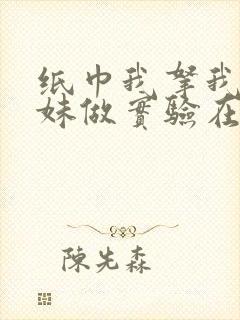 纸巾我拏我
妹做實驗在
陳先森